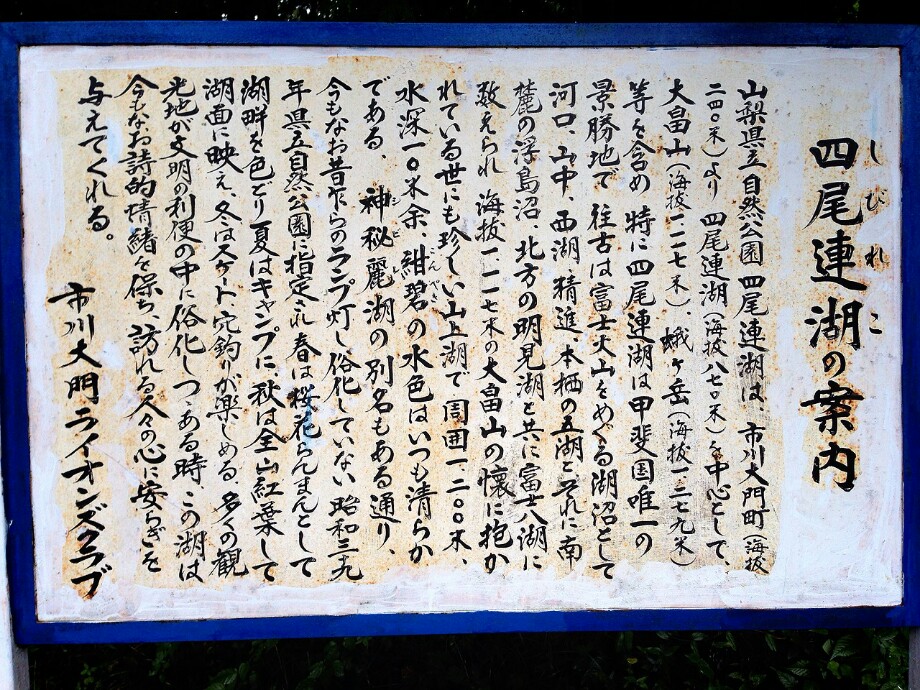 四尾連湖の案内
しびれこ
山梨県立自然公園四尾連湖は、市川大門町(海抜
二四〇米)より 四尾連湖(海抜八七〇米)を中心として、
大畠山(海抜一一一七米)、蛾ヶ岳(海抜一、二七九米)
等を含め 特に四尾連湖は甲斐国唯一の
景勝地で 往古は富士火山をめぐる湖沼として
河口、山中、西湖、精進、本栖の五湖とそれに南
麓の浮島沼、北方の明見湖と共に富士八湖に
数えられ 海抜一、一一七米の大畠山の懐に抱か
れている世にも珍しい山上湖で 周囲一、二〇〇米、
水深一〇米余、紺碧の水色はいつも清らか
んぺき
である、神秘麗湖の別名もある通り、
シビレ
今もなお昔乍らのランプ灯し俗化していない 昭和三九
年県立自然公園に指定され 春は桜花らんまんとして
湖畔を色どり夏はキャンプに秋は全山紅葉して
湖面に映え、冬はスケート穴釣りが楽しめる 多くの観
光地が文明の利便の中に俗化しつゝある時、この湖は
今もなお詩的情緒を保ち、訪れる人々の心に安らぎを
与えてくれる。
市川大門ライオンズクラブ